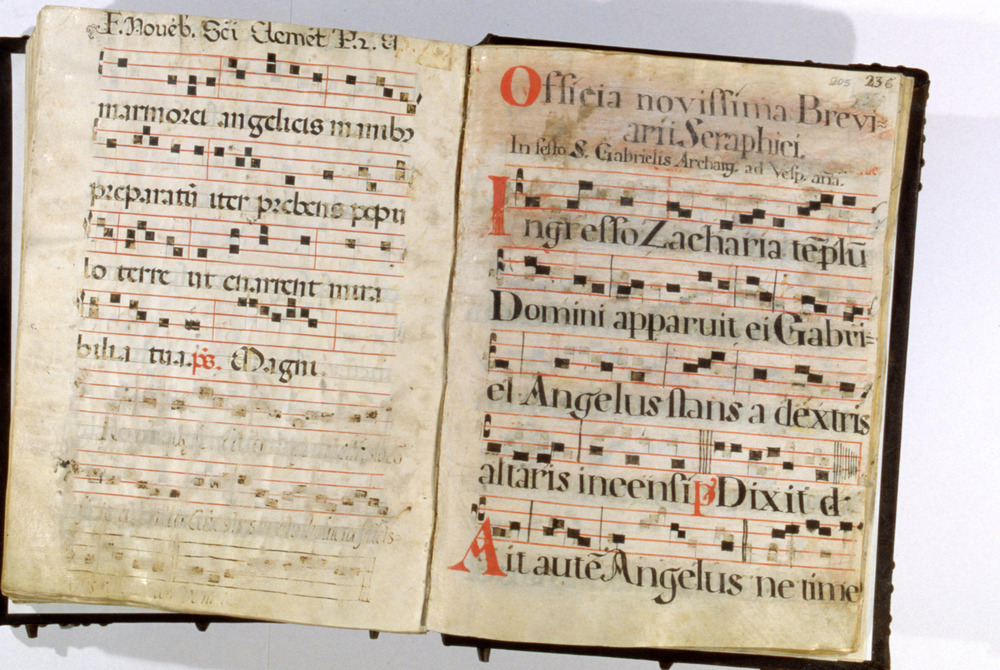 F. Nouēb. Sc̄i Clemēt P. 2. A
marmorei angelicis manibꝰ
preparatū iter prebens popu
lo terre ut enarrent mira
bilia tua. ps. Magni.
205 236
Officia noviſſima Brevi=
arii Seraphici.
In feſto S. Gabrielis Archang. ad Veſp. ana.
Ingreſſo Zacharia tēplū
Domini apparuit ei Gabri=
el Angelus ſtans a dextris
altaris incenſi p̄ Dixit d
Ait autē Angelus ne time